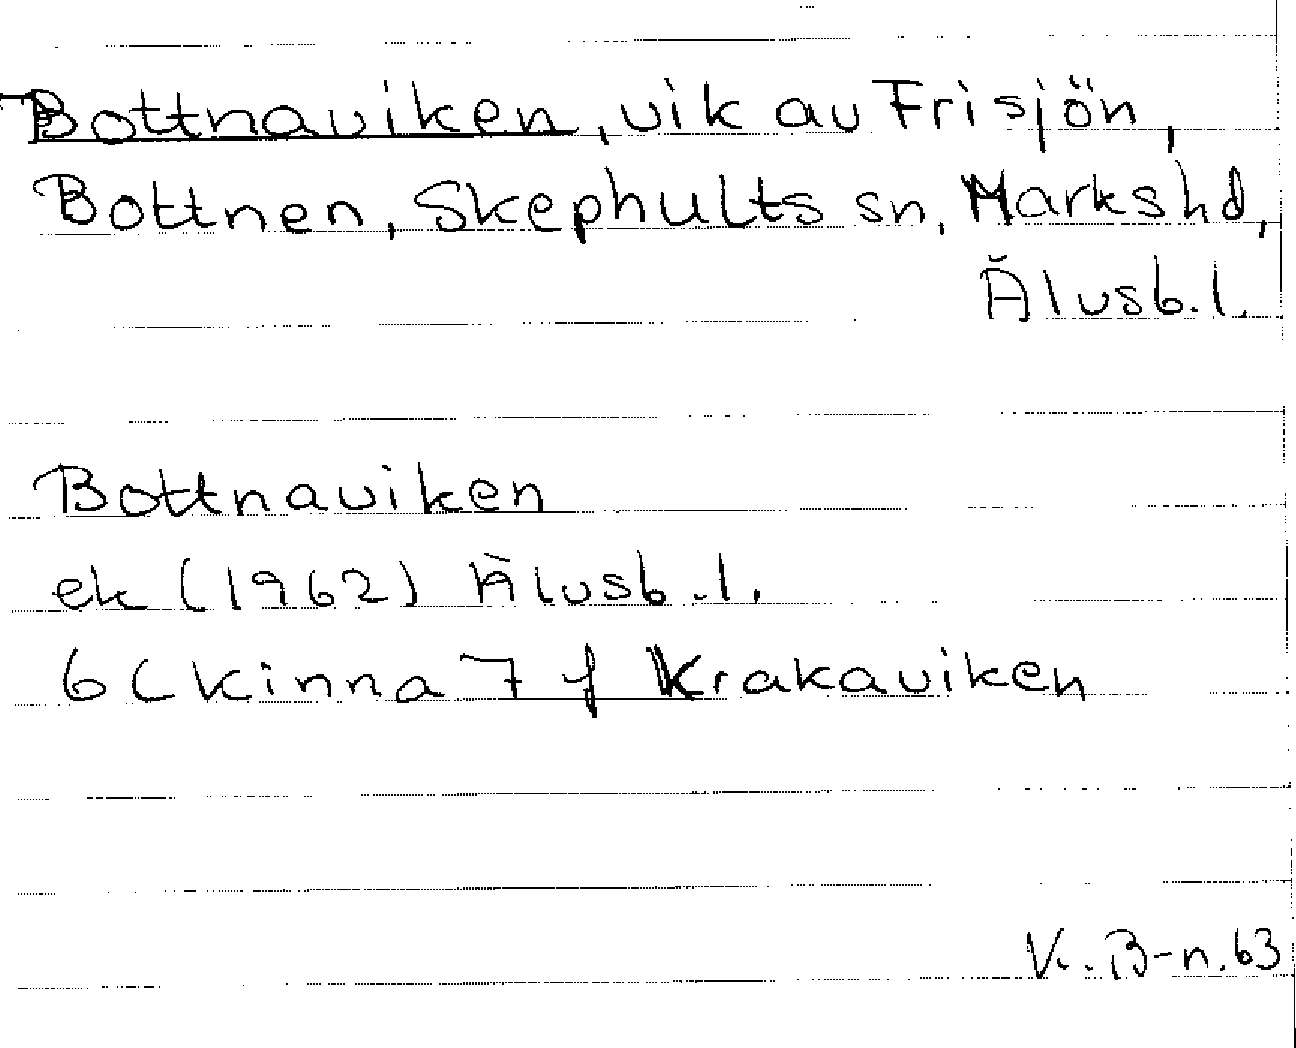 Bottnaviken, vik av Frisjön,
Bottnen, Skephults sn, Marks hd,
Älvsb. l.
Bottnaviken
ek (1962) Älvsb. l.
6C Kinna 7 f Krakaviken
K. B-n. 63